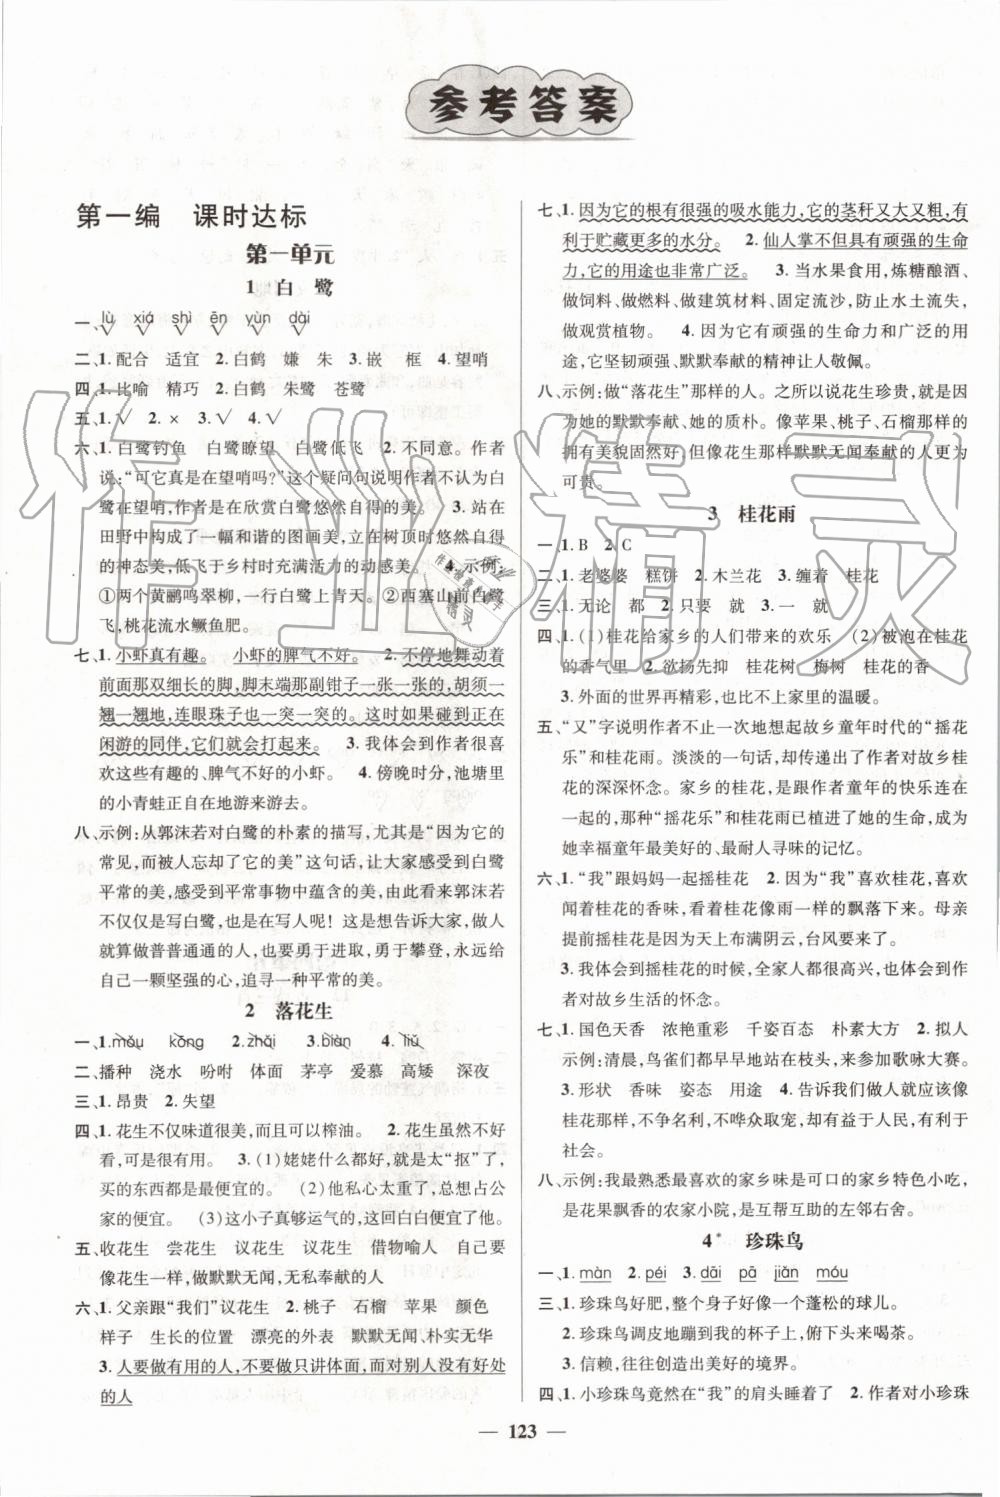 参考答案
第一编　课时达标
第一单元
1 白　鹭
一、lù　xiá　shì　ēn　yùn　dài
二、1.配合　适宜　2.白鹤　嫌　朱　3.嵌　框　4.望哨
四、1.比喻　精巧　2.白鹤　朱鹭　苍鹭
五、1.√　2.×　3.√　4.√
六、1.白鹭钓鱼　白鹭瞭望　白鹭低飞　2.不同意。作者
说:“可它真是在望哨吗?”这个疑问句说明作者不是说白
鹭在望哨,作者是在欣赏白鹭的美。　3.站在
田野中构成了一幅和谐的图画美,立在树顶时悠然自得
的神态美,低飞于乡村时充满活力的动感美。　4.示例:
①两个黄鹂鸣翠柳,一行白鹭上青天。　②西塞山前白鹭
飞,桃花流水鳜鱼肥。
七、1.小虾真有趣。　小虾的脾气不好。　2.不停地舞动着
前面那双细长的脚,脚末端那副钳子一张一张的,胡须一
翘一翘地,连眼珠子也一突一突的。这时如果碰到正在
闲游的同伴,它们就会打起来。　3.我体会到作者很喜
欢这些有趣的、脾气不好的小虾。　4.傍晚时分,池塘里
的小青蛙正自在地游来游去。
八、示例:从郭沫若对白鹭的朴素的描写,尤其是“因为它的
常见,而被人忘却了它的美”这句话,让大家感受到白鹭
平常的美,感受到平常事物中蕴含的美,由此看来郭沫若
不仅仅是写白鹭,也是在写人呢!这是想告诉大家,做人
就算做普普通通的人,也要勇于进取,勇于攀登,永远给
自己一颗坚强的心,追寻一种平常的美。
2　落花生
一、1.mǔ　kōng　2.zhāi　3.biàn　4.liú
二、播种　浇水　吩咐　体面　茅亭　爱慕　高矮　深夜
三、1.昂贵　2.失望
四、1.花生不仅味道很美,而且可以榨油。　2.花生虽然不好
看,可是很有用。　3.(1)姥姥什么都好,就是太“抠”了,
买的东西都是便宜的。　(2)他私心太重了,总想占公
家的便宜。　(3)这小子真够运气的,这回白白便宜了他。
五、收花生　尝花生　议花生　议花生　借物喻人　自己要
像花生一样,做默默无闻、无私奉献的人
六、1.父亲跟“我们”议花生　2.桃子　石榴　苹果　颜色
样子　生长的位置　漂亮的外表　默默无闻、朴实无华
3.人要做有用的人,不要做只讲体面,而对别人没有好处
的人
七、1.因为它的根有很强的吸水能力,它的茎秆又大又粗,有
利于贮藏更多的水分。　2.仙人掌不但具有顽强的生命
力,它的用途也非常广泛。　3.当水果食用,炼糖酿酒、
做饲料、做燃料、做建筑材料、固定流沙,防止水土流失,
做观赏植物。　4.因为它有顽强的生命力和广泛的用
途,它坚韧顽强、默默奉献的精神让人敬佩。
八、示例:做“落花生”那样的人。之所以说花生珍贵,就是因
为她的默默奉献、她的质朴。像苹果、桃子、石榴那样的
拥有美貌固然好,但像花生那样默默无闻奉献的人更为
可贵。
3　桂花雨
一、1.B　2.C
二、1.老婆婆　糕饼　2.木兰花　3.缠着　桂花
三、1.无论　都　2.只要　就　3.　就
四、1.(1)桂花给家乡的人们带来的欢乐　(2)被泡在桂花
的香气里　2.欲扬先抑　桂花树　梅树　桂花的香
3.外面的世界再精彩,也比不上家里的温暖。
五、“又”字说明作者不止一次地想起故乡童年时代的“摇花
乐”和桂花雨。淡淡的一句话,却传递出了作者对故乡桂
花的深深怀念。家乡的桂花,是跟作者童年的快乐连在
一起的,那些“摇花乐”和桂花雨植入了她的生命,成为
她幸福童年最美好的、最耐人寻味的记忆。
六、1.“我”跟妈妈一起摇桂花　2.因为“我”喜欢桂花,喜欢
闻着桂花的香味,看着桂花像雨一样的飘落下来。母亲
提前摇桂花是因为天上布满阴云,台风要来了。
3.我体会到摇桂花的时候,全家都很高兴,也体会到作
者对故乡生活的怀念。
七、1.国色天香　浓艳重彩　千姿百态　朴素大方　2.拟人
示例:清晨,鸟雀们都早早地站在枝头,来参加歌咏大赛。
3.形状　香味　姿态　用途　4.告诉我们做人就应该像
桂花那样,不争名利,不哗众取宠,却有益于人民,有利于
社会。
八、示例:我最熟悉最喜欢的家乡味是可口的家乡特色小吃,
是花果飘香的农家小院,是互帮互助的左邻右舍。
4*　珍珠鸟
一、1.màn　2.péi　3.dāi　pā　jiǎn　móu
三、1.珍珠鸟好肥,整个身子好像一个蓬松的球儿。
2.珍珠鸟调皮地蹦到我的杯子上,俯下头来喝茶。
3.信赖,往往创造出美好的境界。
四、1.小珍珠鸟竟然在“我”的肩头睡着了　2.作者对小珍珠
— 123 —
作业精灵